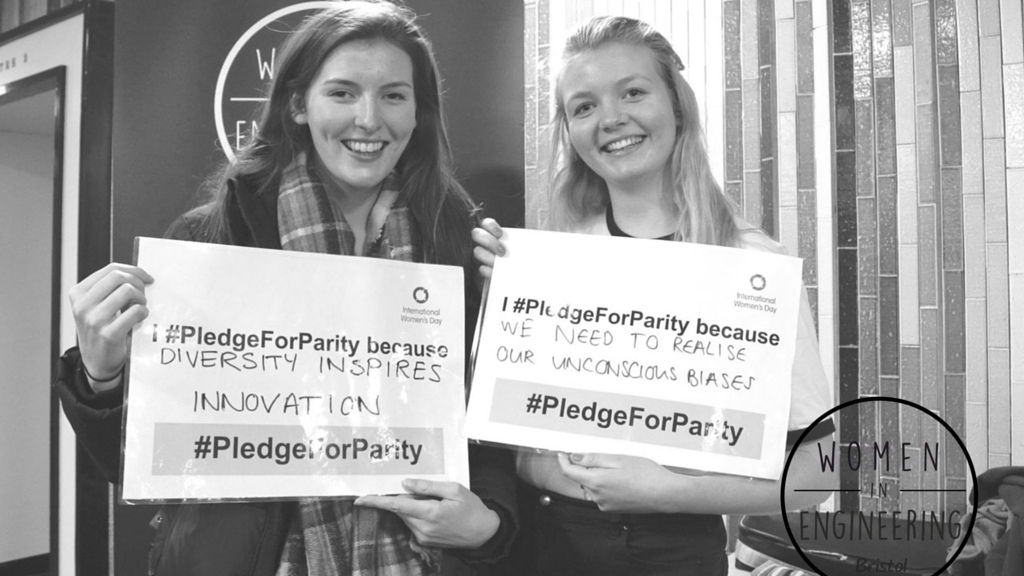 W
EN
International
Women's Day
I #PledgeForParity because
DIVERSITY INSPIRES
INNOVATION
#PledgeForParity
International
Women's Day
I #PledgeForParity because
WE NEED TO REALISE
OUR UNCONSCIOUS BIASES
#PledgeForParity
WOMEN
IN
ENGINEERING
Bristol